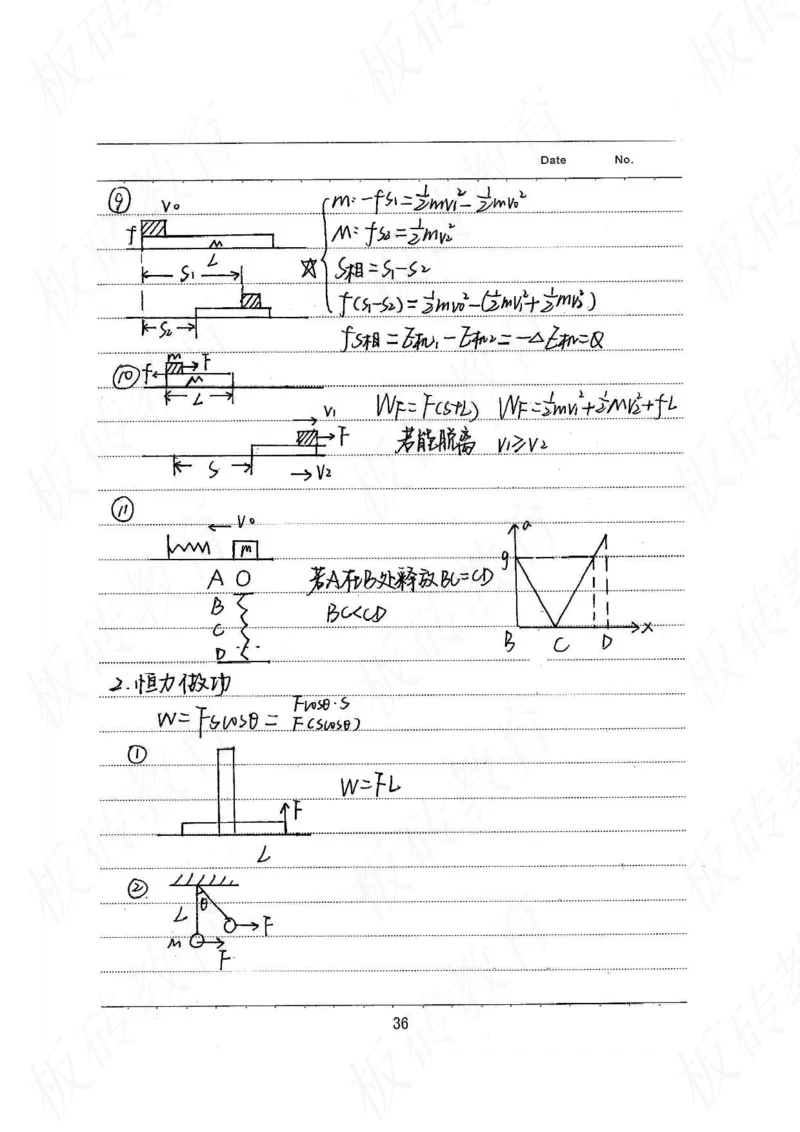 Date No.
⑨ V₀
f M
L
S₁
S₂
m: -fS₁=½mv₁²-½mv₀²
M: fS₂=½mv₂²
☆ S相=S₁-S₂
f(S₁-S₂)=½mv₀²-(½mv₁²+½mv₂²)
fS相=E机₁-E机₂=-ΔE机=Q
⑩ f m F
M
L
WF=F(S+L) WF=½mv₁²+½Mv₂²+fL
V₁
F
若能脱离 V₁≥V₂
S V₂
⑪
V₀
m
A O
B
C
D
若A在B处释放BC=CD
BC<CD
a
g
B C D x
2.恒力做功
W=Fscosθ= Fcosθ·S
F(scosθ)
①
W=FL
F
L
②
θ
L
F
M
F
36
板砖教育